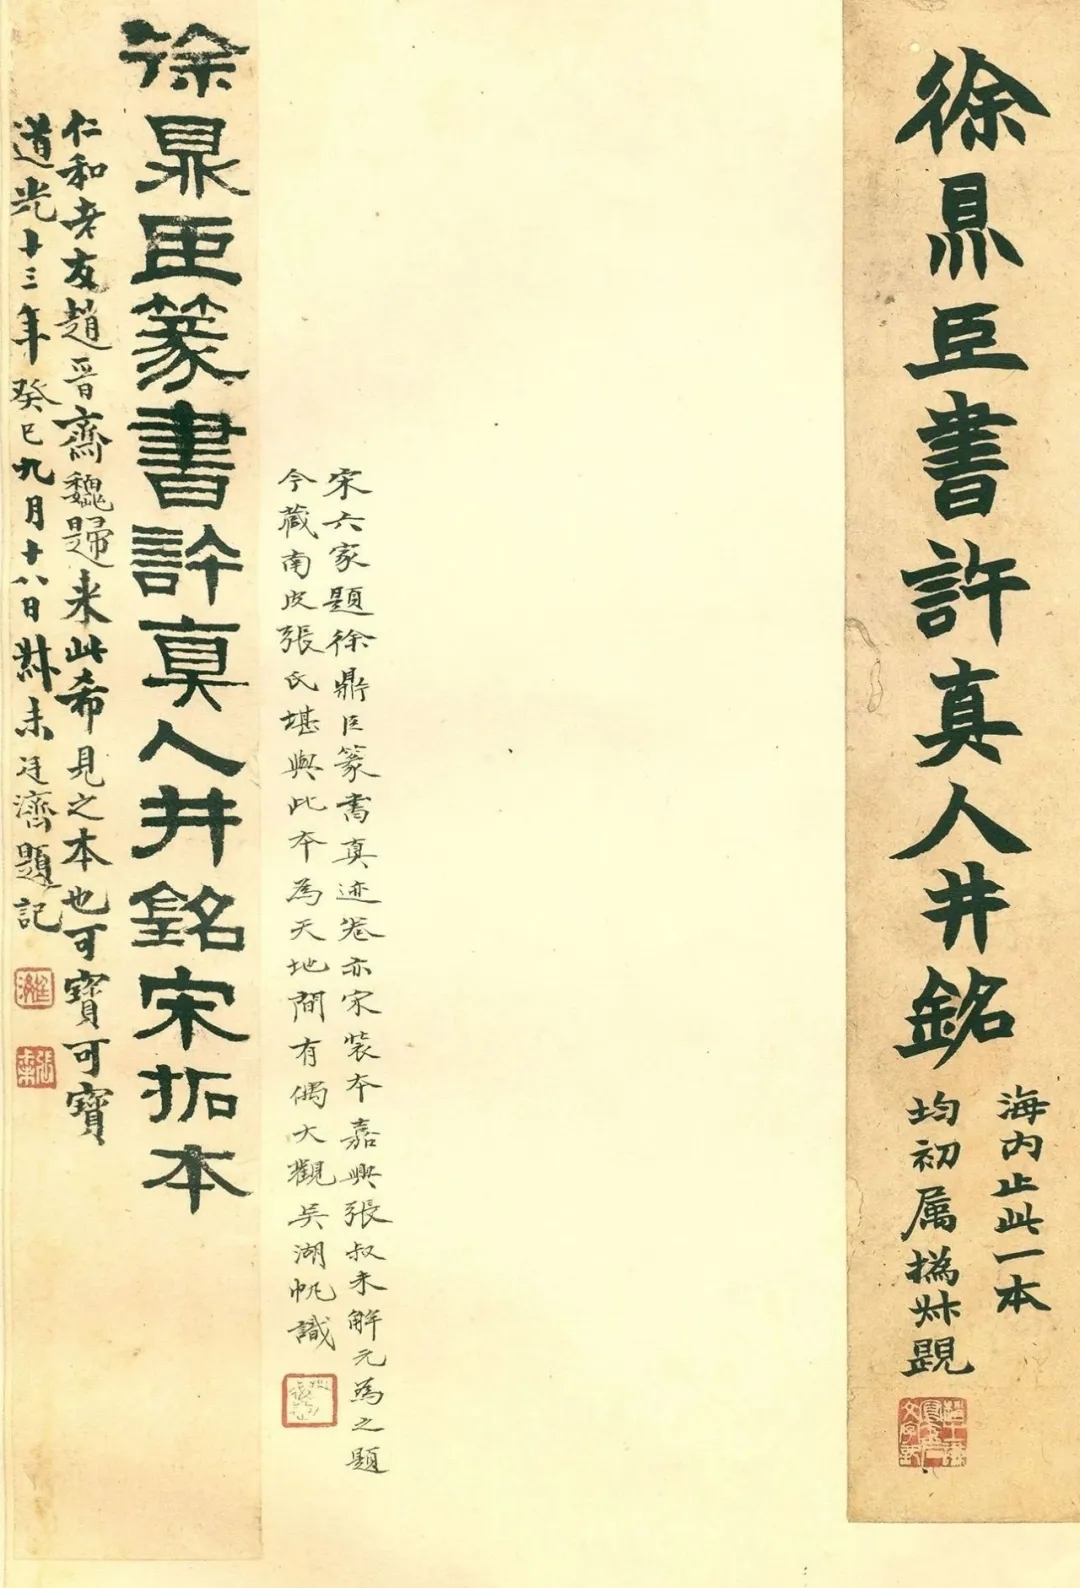 徐鼎臣書許真人井銘
海內止此一本
均初属撝叔題
宋六家題徐鼎臣篆書真迹卷亦宋裝本嘉興張叔未解元為之題
今藏南皮張氏堪與此本為天地間有偶大觀吳湖帆識
徐鼎臣篆書許真人井銘宋拓本
仁和老友趙晉齋魏歸来此希見之本也可寶可寶
道光十三年癸巳九月十八日叔未廷濟題記